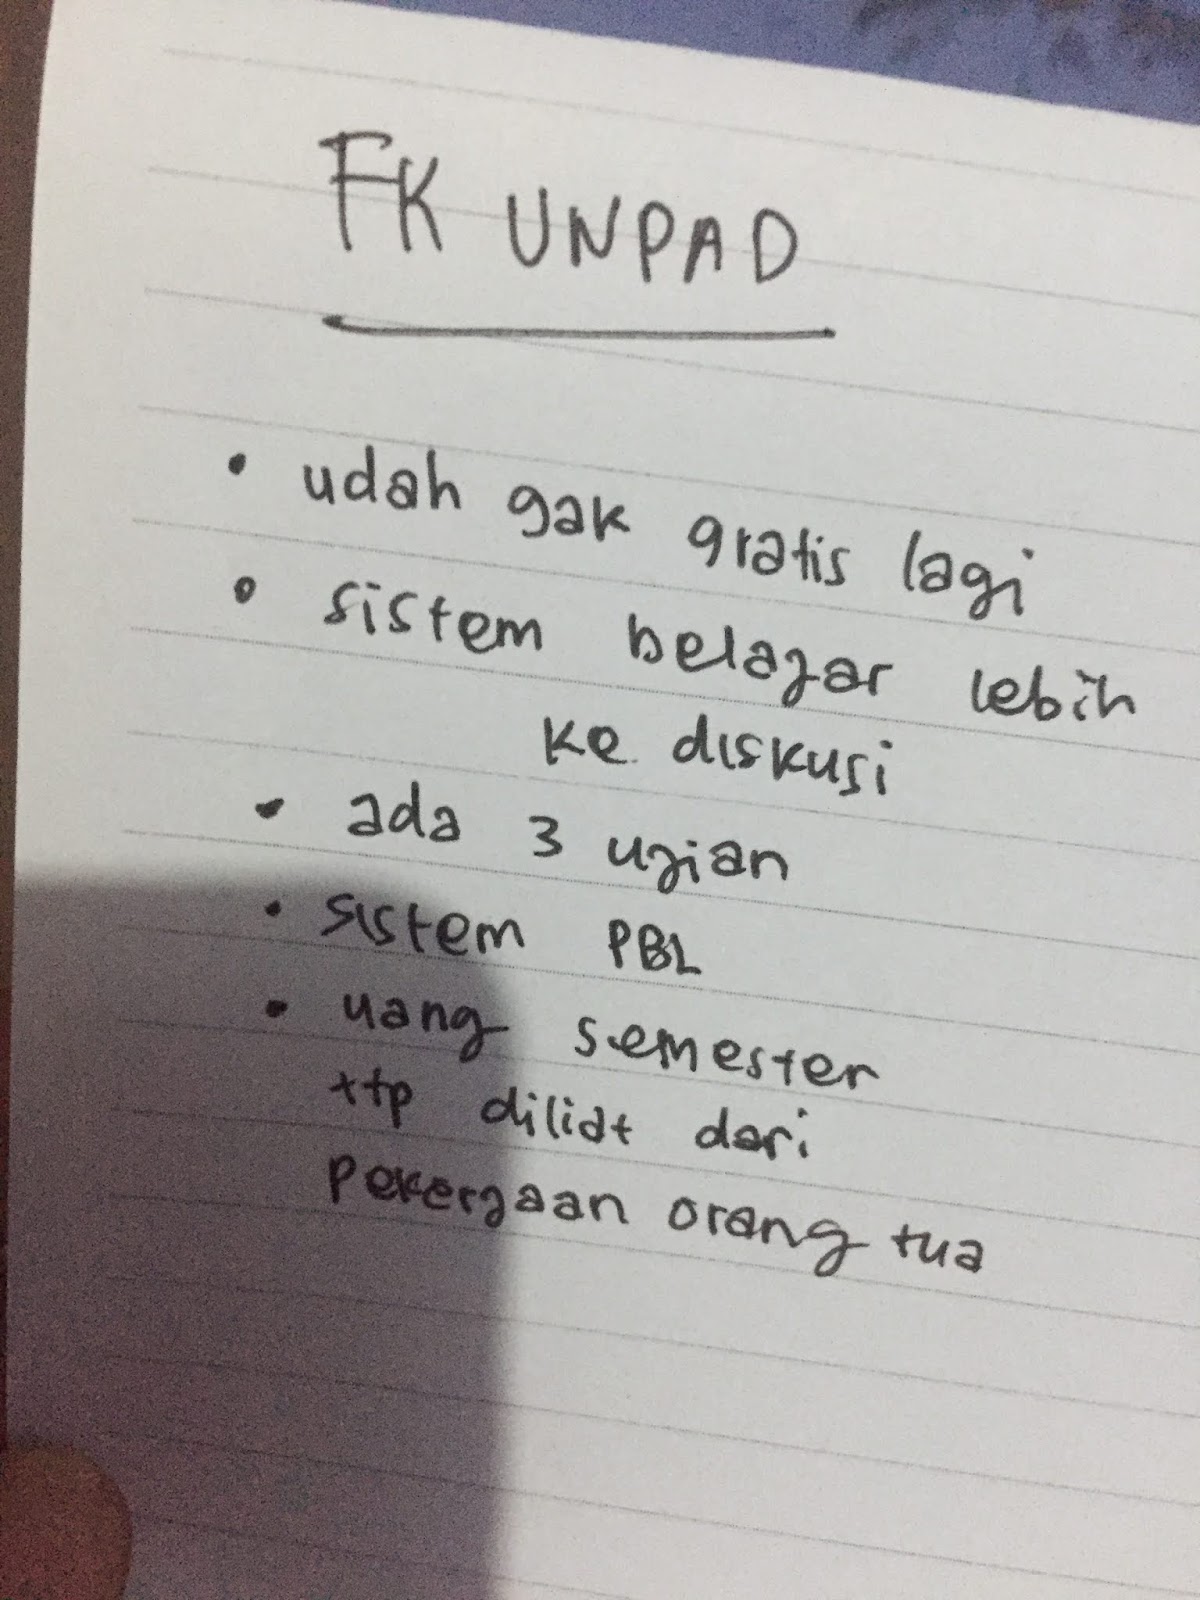 FK UNPAD
• udah gak gratis lagi
• sistem belajar lebih
ke diskusi
• ada 3 ujian
• sistem PBL
• uang semester
ttp diliat dari
pekerjaan orang tua